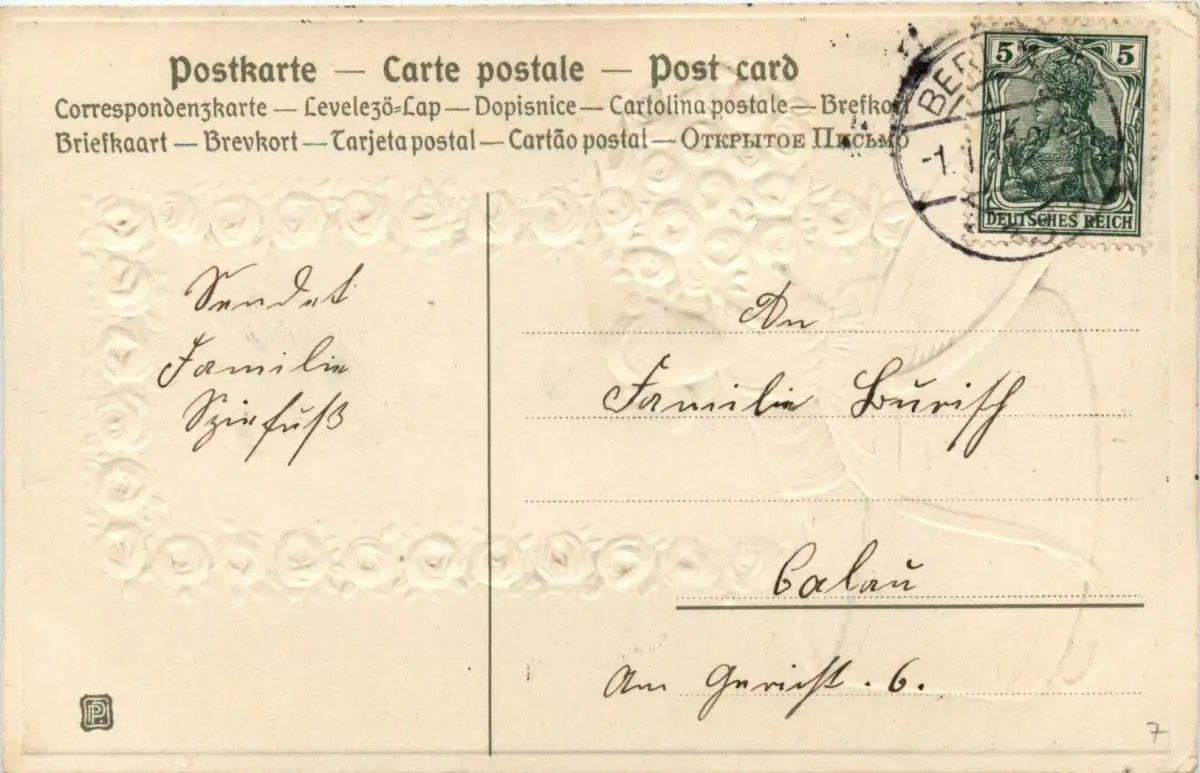 Postkarte — Carte postale — Post card
Correspondenzkarte — Levelezö-Lap — Dopisnice — Cartolina postale — Brefkort
Briefkaart — Brevkort — Tarjeta postal — Cartão postal — Открытое Письмо
5 5
DEUTSCHES REICH
BER
-1.1
Sendet
Familie
An
Familie Burisch
Calau
Am Gericht. 6.
PP.
7